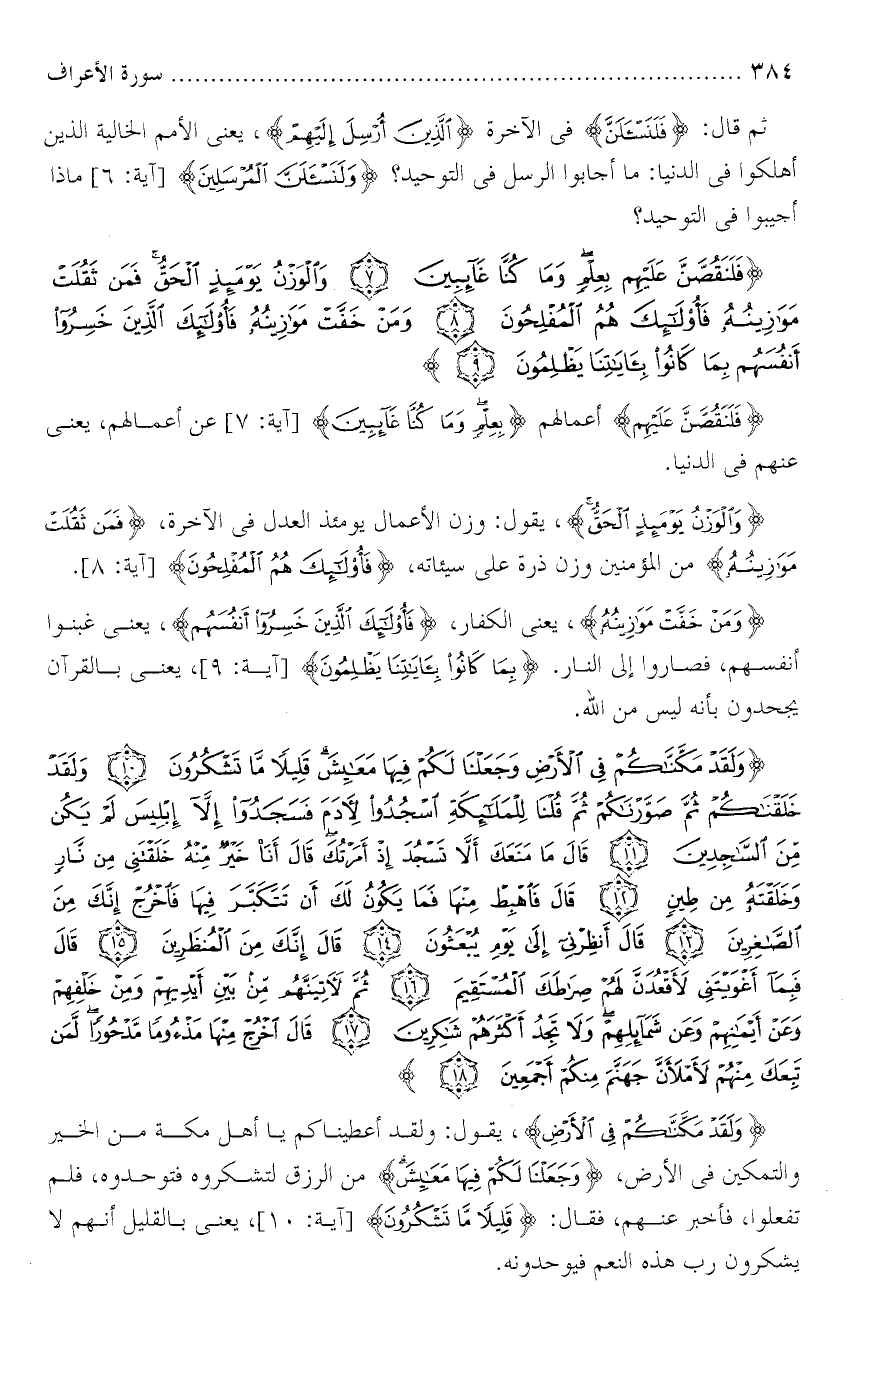 ٣٨٤ ........................................................................ سورة الأعراف
ثم قال: ﴿فَلَنَسْـَٔلَنَّ﴾ فى الآخرة ﴿الَّذِينَ أُرْسِلَ إِلَيْهِمْ﴾، يعنى الأمم الخالية الذين
أهلكوا فى الدنيا: ما أجابوا الرسل فى التوحيد؟ ﴿وَلَنَسْـَٔلَنَّ الْمُرْسَلِينَ﴾ [آية: ٦] ماذا
أجيبوا فى التوحيد؟
﴿فَلَنَقُصَّنَّ عَلَيْهِم بِعِلْمٍ ۖ وَمَا كُنَّا غَآئِبِينَ ﴿٧﴾ وَالْوَزْنُ يَوْمَئِذٍ الْحَقُّ ۚ فَمَن ثَقُلَتْ
مَوَازِينُهُۥ فَأُو۟لَٰٓئِكَ هُمُ الْمُفْلِحُونَ ﴿٨﴾ وَمَنْ خَفَّتْ مَوَازِينُهُۥ فَأُو۟لَٰٓئِكَ الَّذِينَ خَسِرُوٓا۟
أَنفُسَهُم بِمَا كَانُوا۟ بِـَٔايَٰتِنَا يَظْلِمُونَ ﴿٩﴾ ﴾
﴿فَلَنَقُصَّنَّ عَلَيْهِم﴾ أعمالهم ﴿بِعِلْمٍ ۖ وَمَا كُنَّا غَآئِبِينَ﴾ [آية: ٧] عن أعمالهم، يعنى
عنهم فى الدنيا.
﴿وَالْوَزْنُ يَوْمَئِذٍ الْحَقُّ ۚ﴾، يقول: وزن الأعمال يومئذ العدل فى الآخرة، ﴿فَمَن ثَقُلَتْ
مَوَازِينُهُۥ﴾ من المؤمنين وزن ذرة على سيئاته، ﴿فَأُو۟لَٰٓئِكَ هُمُ الْمُفْلِحُونَ﴾ [آية: ٨].
﴿وَمَنْ خَفَّتْ مَوَازِينُهُۥ﴾، يعنى الكفار، ﴿فَأُو۟لَٰٓئِكَ الَّذِينَ خَسِرُوٓا۟ أَنفُسَهُم﴾، يعنى غبنوا
أنفسهم، فصاروا إلى النار. ﴿بِمَا كَانُوا۟ بِـَٔايَٰتِنَا يَظْلِمُونَ﴾ [آية: ٩]، يعنى بالقرآن
يجحدون بأنه ليس من الله.
﴿وَلَقَدْ مَكَّنَّٰكُمْ فِى الْأَرْضِ وَجَعَلْنَا لَكُمْ فِيهَا مَعَٰيِشَ ۗ قَلِيلًا مَّا تَشْكُرُونَ ﴿١٠﴾ وَلَقَدْ
خَلَقْنَٰكُمْ ثُمَّ صَوَّرْنَٰكُمْ ثُمَّ قُلْنَا لِلْمَلَٰٓئِكَةِ اسْجُدُوا۟ لِـَٔادَمَ فَسَجَدُوٓا۟ إِلَّآ إِبْلِيسَ لَمْ يَكُن
مِّنَ السَّٰجِدِينَ ﴿١١﴾ قَالَ مَا مَنَعَكَ أَلَّا تَسْجُدَ إِذْ أَمَرْتُكَ ۖ قَالَ أَنَا۠ خَيْرٌ مِّنْهُ خَلَقْتَنِى مِن نَّارٍ
وَخَلَقْتَهُۥ مِن طِينٍ ﴿١٢﴾ قَالَ فَاهْبِطْ مِنْهَا فَمَا يَكُونُ لَكَ أَن تَتَكَبَّرَ فِيهَا فَاخْرُجْ إِنَّكَ مِنَ
الصَّٰغِرِينَ ﴿١٣﴾ قَالَ أَنظِرْنِىٓ إِلَىٰ يَوْمِ يُبْعَثُونَ ﴿١٤﴾ قَالَ إِنَّكَ مِنَ الْمُنظَرِينَ ﴿١٥﴾ قَالَ
فَبِمَآ أَغْوَيْتَنِى لَأَقْعُدَنَّ لَهُمْ صِرَٰطَكَ الْمُسْتَقِيمَ ﴿١٦﴾ ثُمَّ لَـَٔاتِيَنَّهُم مِّنۢ بَيْنِ أَيْدِيهِمْ وَمِنْ خَلْفِهِمْ
وَعَنْ أَيْمَٰنِهِمْ وَعَن شَمَآئِلِهِمْ ۖ وَلَا تَجِدُ أَكْثَرَهُمْ شَٰكِرِينَ ﴿١٧﴾ قَالَ اخْرُجْ مِنْهَا مَذْءُومًا مَّدْحُورًا ۖ لَّمَن
تَبِعَكَ مِنْهُمْ لَأَمْلَأَنَّ جَهَنَّمَ مِنكُمْ أَجْمَعِينَ ﴿١٨﴾ ﴾
﴿وَلَقَدْ مَكَّنَّٰكُمْ فِى الْأَرْضِ﴾، يقول: ولقد أعطيناكم يا أهل مكة من الخير
والتمكين فى الأرض، ﴿وَجَعَلْنَا لَكُمْ فِيهَا مَعَٰيِشَ ۗ﴾ من الرزق لتشكروه فتوحدوه، فلم
تفعلوا، فأخبر عنهم، فقال: ﴿قَلِيلًا مَّا تَشْكُرُونَ﴾ [آية: ١٠]، يعنى بالقليل أنهم لا
يشكرون رب هذه النعم فيوحدونه.